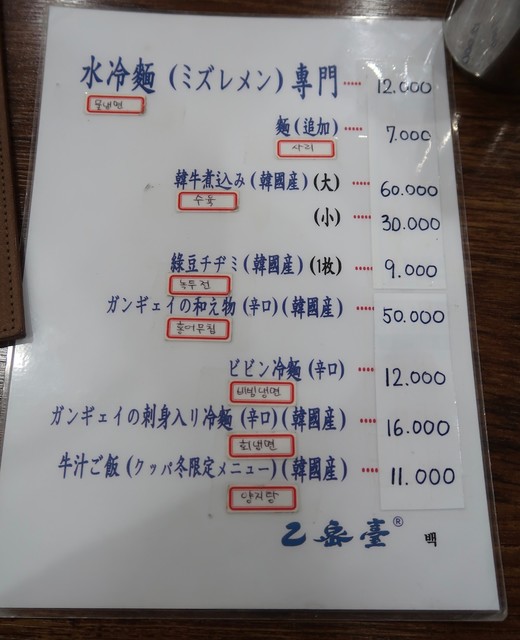 水冷麵 (ミズレメン) 專門 ····· 12.000
물냉면
麵 (追加) ····· 7.000
사리
韓牛煮込み (韓國産) (大) ····· 60.000
수육
(小) ····· 30.000
綠豆チヂミ (韓國産) (1枚) ····· 9.000
녹두전
ガンギェイの和え物 (辛口) (韓國産) ····· 50.000
홍어무침
ビビン冷麵 (辛口) ····· 12.000
비빔냉면
ガンギェイの刺身入り冷麵 (辛口) (韓國産) ····· 16.000
회냉면
牛汁ご飯 (クッパ冬限定メニュー) (韓國産) ····· 11.000
양지탕
乙密臺® 백